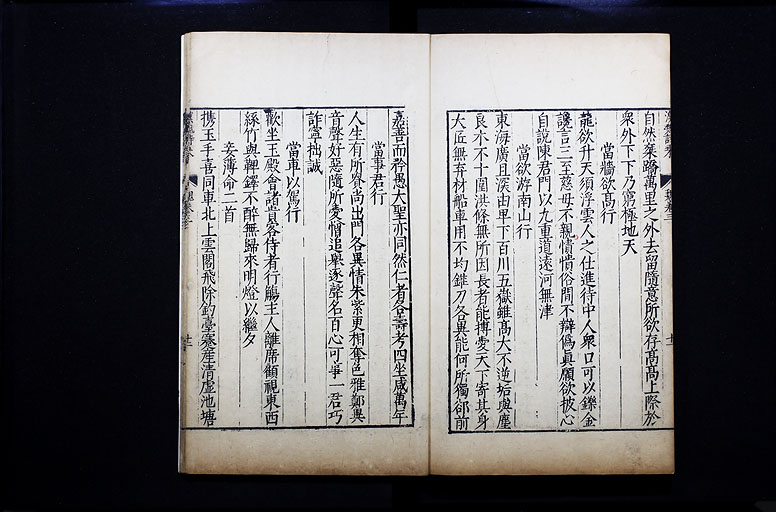 自然乘蹻萬里之外去留隨意所欲存髙髙上際於
衆外下下乃窮極地天
當牆欲髙行
龍欲升天須浮雲人之仕進待中人衆口可以鑠金
讒言三至慈母不親憒憒俗間不辯僞真願欲披心
自說陳君門以九重道逺河無津
當欲游南山行
東海廣且深由卑下百川五嶽雖髙大不逆垢與塵
良木不十圍洪條無所因長者能博愛天下寄其身
大匠無弃材船車用不均錐刀各異能何所獨郤前
嘉善而矜愚大聖亦同然仁者各壽考四坐咸萬年
當事君行
人生有所貴尚出門各異情朱紫更相奪色雅鄭異
音聲好惡隨所愛憎追舉逐聲名百心可事一君巧
詐寧拙誠
當車以駕行
歡坐玉殿會諸貴客侍者行觴主人離席顧視東西
絲竹與鞞鐸不醉無歸來明燈以繼夕
妾薄命二首
携玉手喜同車北上雲閣飛除釣臺蹇産清虚池塘